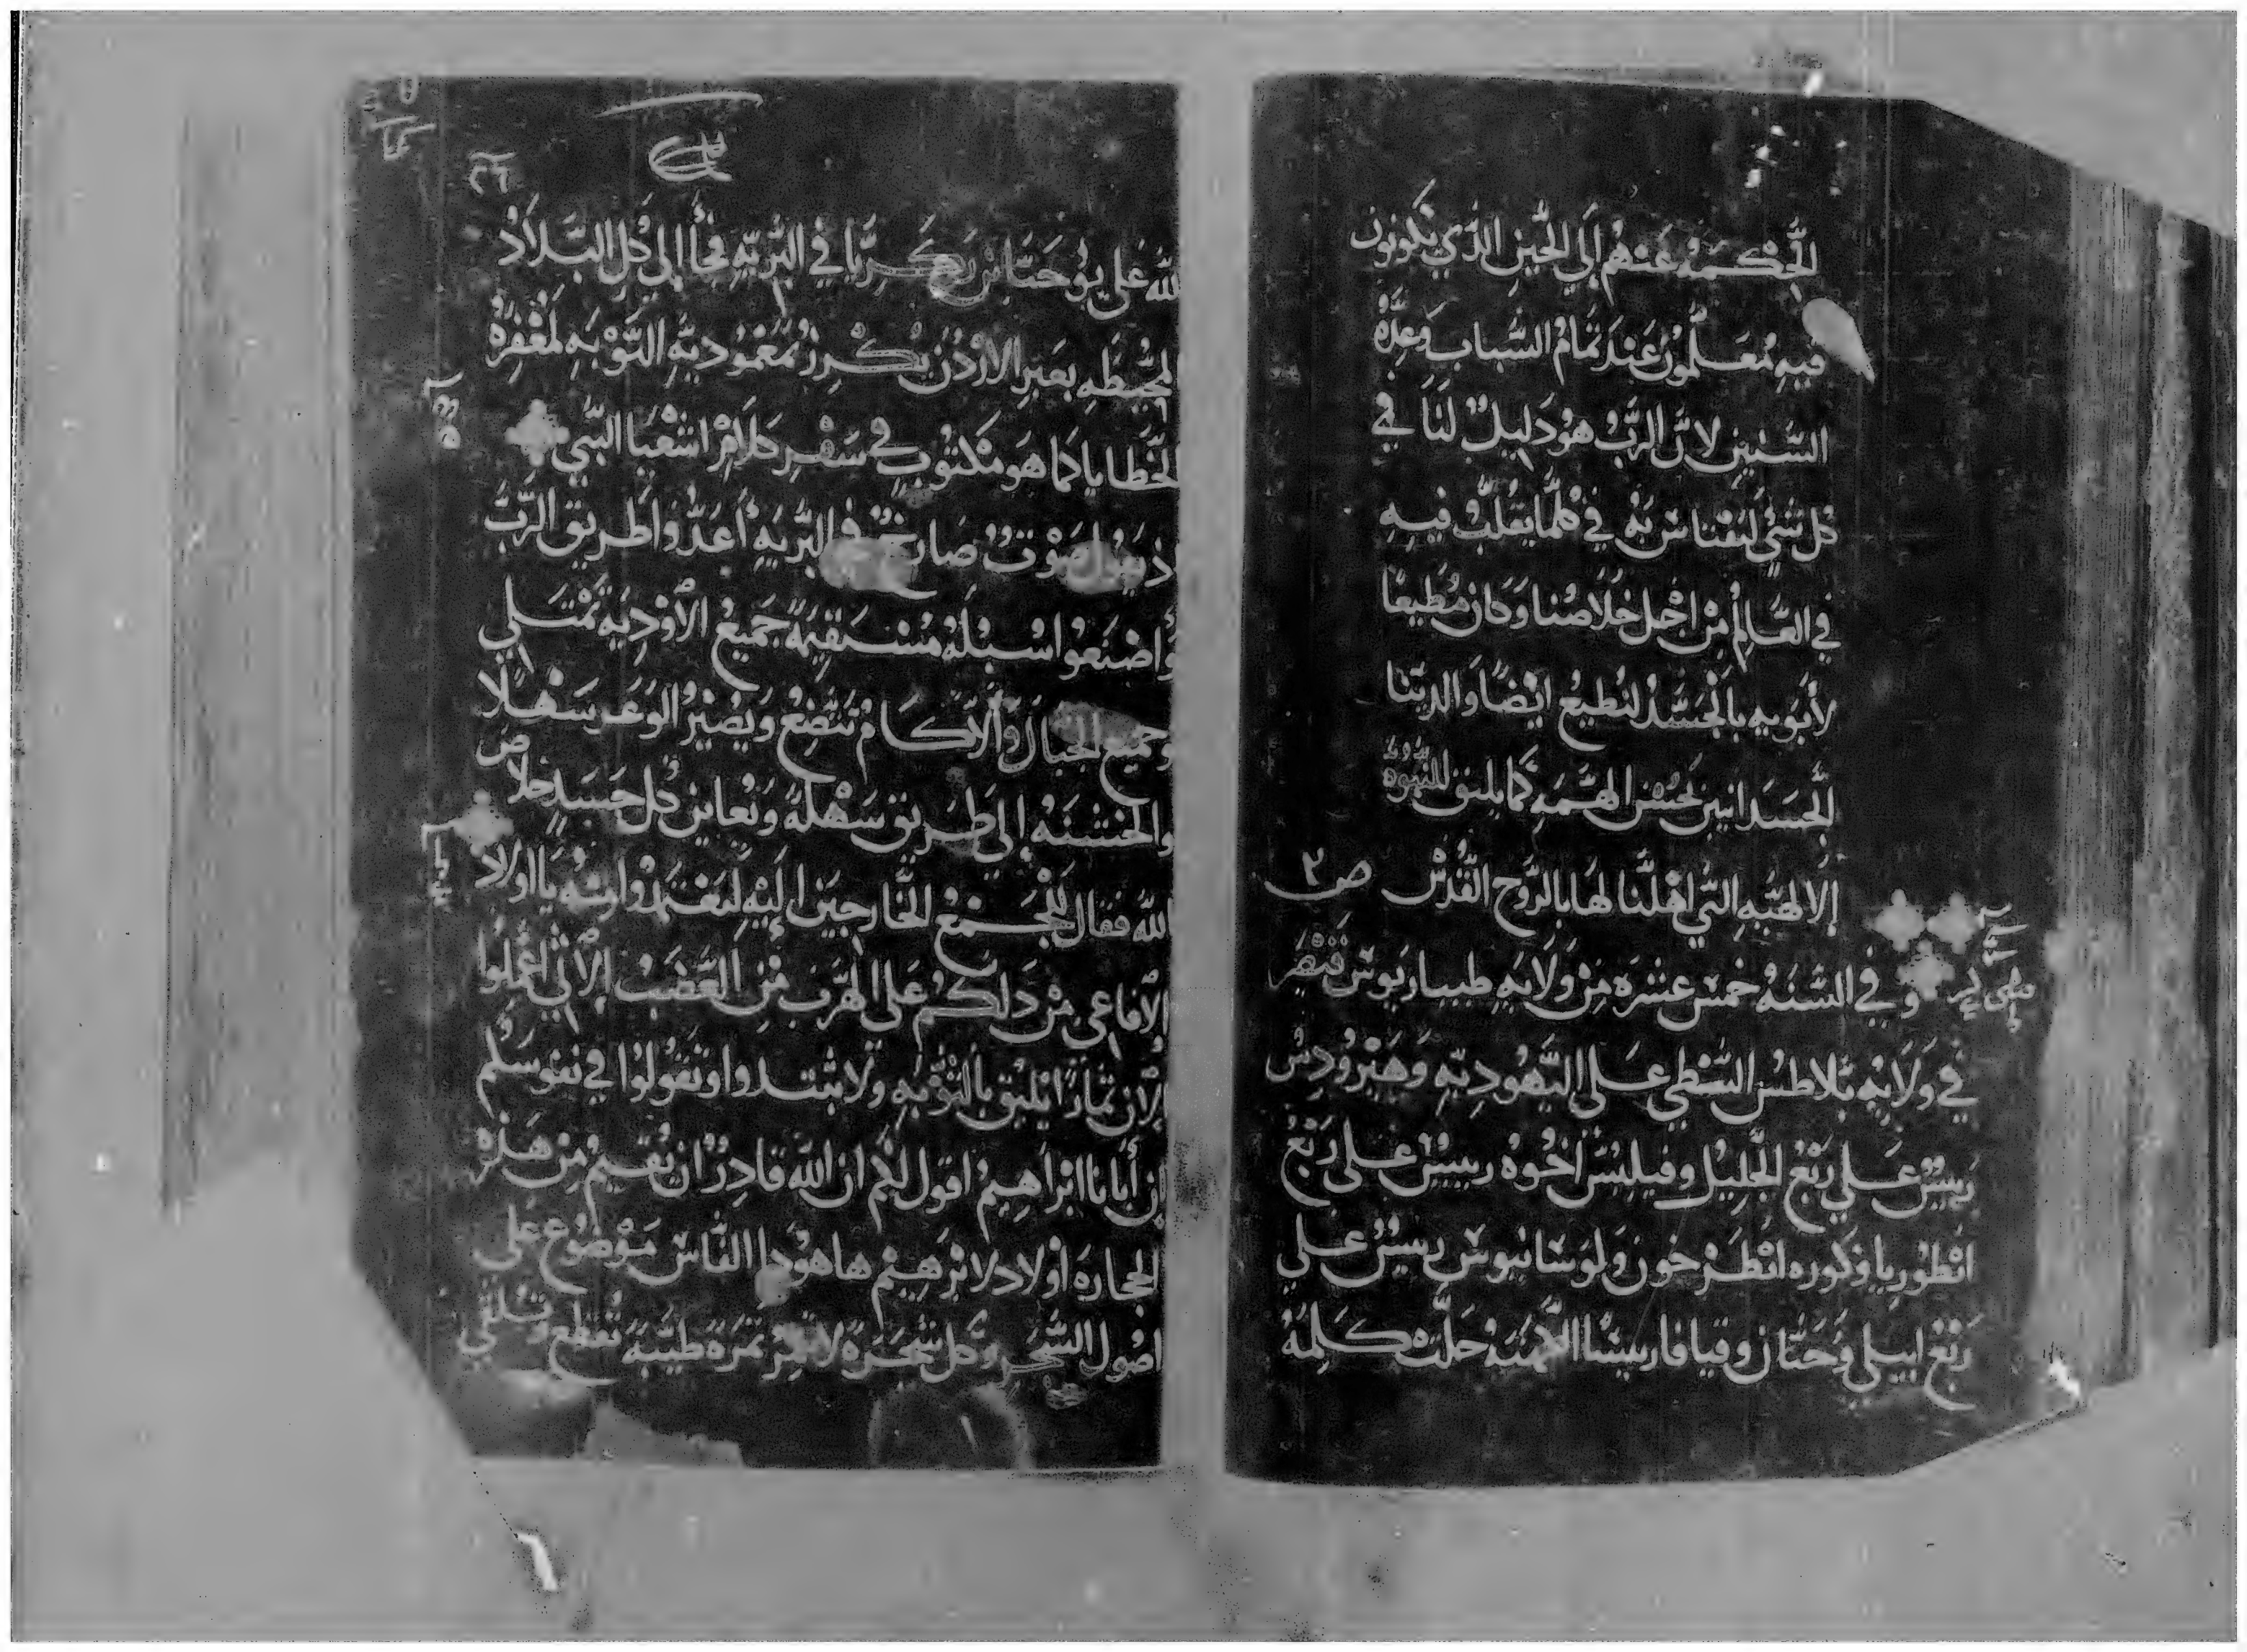 الحكمه عنهم إلي الحين الذي يكونون
فيه معلمون عند تمام الشباب وعده
السنين لان الرب هو دليل لنا في
كل شي لنقتاس به في كلما يقلب فيه
في العالم من اجل خلاصنا وكان مطيعا
لأبويه بالجسد لنطيع ايضا والدينا
الجسدانيين بحسن الهمه كما يليق للبنوه
الالهيه التي اهلنا لها بالروح القدس ص ٢
و في السنه خمس عشره من ولايه طيباريوس قيصر
في ولايه بلاطس البنطي علي اليهوديه وهيرودس
رييس علي ربع الجليل وفيلبس اخوه رييس علي ربع
انطوريا وكوره انطرخون ولوسانيوس رييس علي
ربع ابيلي وحنان وقيافا رييسا الأيمنه حلت كلمه
الله علي يوحنا بن زكريا في البريه فجأ إلي كل البلاد
المحيطه بعبر الاردن يكرز بمعموديه التوبه لمغفره
الخطايا كما هو مكتوب في سفر كلام اشعيا النبي
اذ يقول صوت صارخ في البريه أعدوا طريق الرب
وأصنعوا سبله مستقيمه جميع الأوديه تمتلي
وجميع الجبال والآكام تتضع ويصير الوعر سهلا
والخشنه إلي طريق سهله ويعاين كل جسد خلاص
الله فقال للجمع الخارجين إليه ليعتمدوا منه يا اولاد
الأفاعي من دلكم علي الهرب من الغضب الأتي اعملوا
الان ثمارا يليق بالتوبه ولا تبتدوا وتقولوا في نفوسكم
إن أبانا ابراهيم اقول لكم ان الله قادر ان يقيم من هذه
الحجاره أولاد لابرهيم ها هودا الفاس موضوع علي
اصول الشجر وكل شجره لا تثمر ثمره طيبه تقطع وتلقي